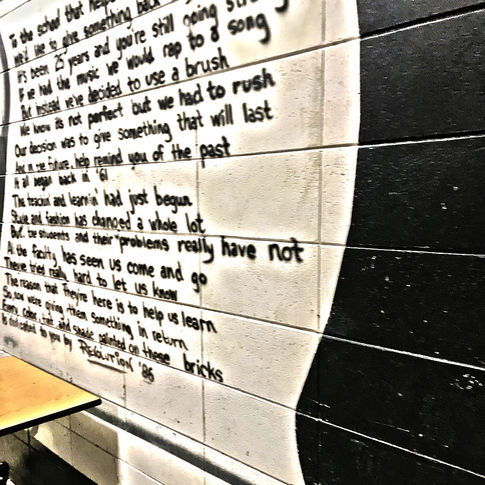 in the school that helped
we'd like to give something back
It's been 25 years and you're still going str
If we had the music we would rap to a song
But instead we've decided to use a brush
We know its not perfect but we had to rush
Our decision was to give something that will last
And in the future, help remind you of the past
It all began back in '61
The teachin' and learnin' had just begun
Style and fashion has changed a whole lot
But the students and their "problems really have not
All the faculty has seen us come and go
They've tried really hard to let us know
The reason that They're here is to help us learn
So now we're giving them something in return
Every color, tint and shade painted on these bricks
Is dedicated to you by REVOLUTION '86